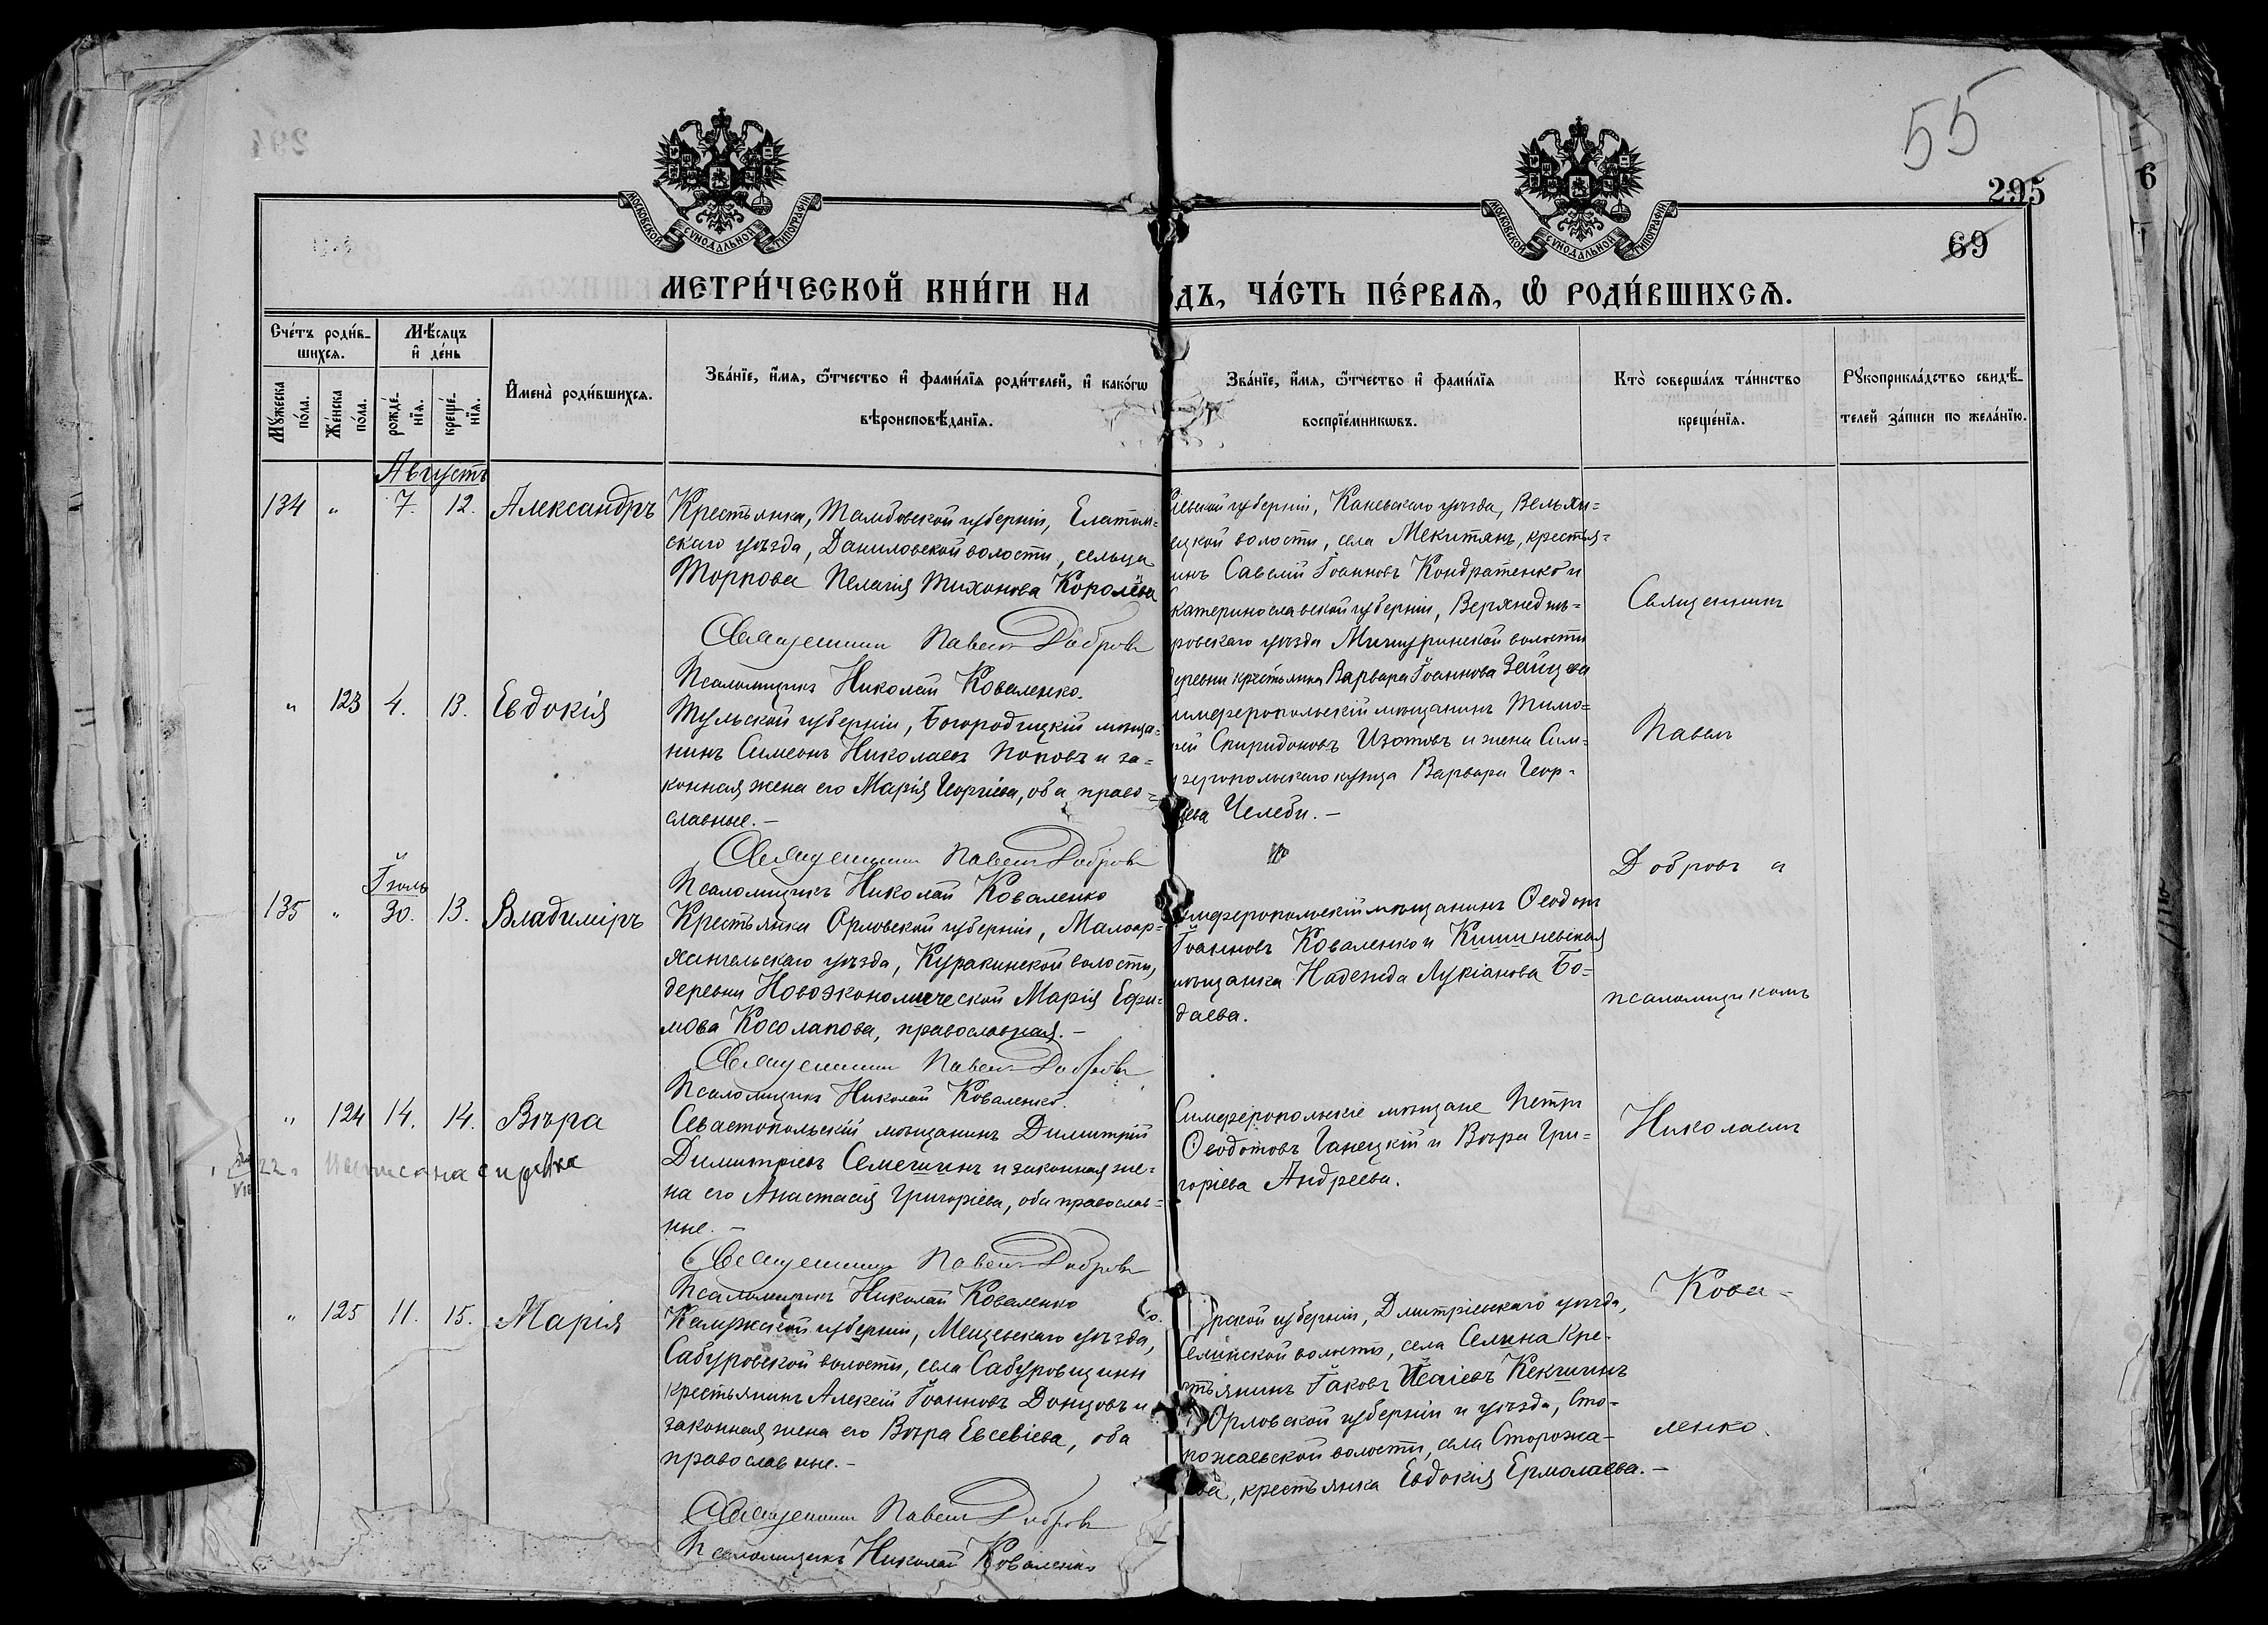 55
295
69
МОСКОВСКОЙ СУНОДАЛЬНОЙ ТИПОГРАФІИ
МОСКОВСКОЙ СУНОДАЛЬНОЙ ТИПОГРАФІИ
МЕТРИ́ЧЕСКОЙ КНИ́ГИ НА
ДЪ, ЧА́СТЬ ПЕ́РВАѦ, Ѡ РОДИ́ВШИХСѦ.
Сче́тъ роди́в-
шихсѧ.
Мꙋжеска по́ла.
Же́нска по́ла.
Мѣ́сѧцъ
и҆ де́нь
рожде́-нїѧ.
креще́-нїѧ.
И҆мена̀ роди́вшихсѧ.
Зва́нїе, и҆́мѧ, ѻ҆́тчество и҆ фами́лїѧ роди́телей, и҆ како́гѡ
вѣроисповѣ́данїѧ.
Зва́нїе, и҆́мѧ, ѻ҆́тчество и҆ фами́лїѧ
воспрїе́мникѡвъ.
Кто̀ соверша́лъ та́инство
креще́нїѧ.
Рꙋкоприкла́дство свидѣ́-
телей за́писи по жела́нїю.
Августъ
134 " 7. 12. Александръ
Крестьянка, Тамбовской губерніи, Елатом-
скаго уѣзда, Даниловской волости, сельца
Торпова Пелагія Тихонова Королёва
Священникъ Павелъ Добровъ
Псаломщикъ Николай Коваленко.
іевской губерніи, Каневскаго уѣзда,
ецкой волости, села Мекитянъ, крестья-
инъ Савелій Іоанновъ Кондратенко и
катеринославской губерніи, Верхнеднѣ-
ровскаго уѣзда Мишуринской волости
деревни крестьянка Варвара Іоаннова Зайцева
" 123 4. 13. Евдокія
Тульской губерніи, Богородицкій мѣща-
нинъ Симеонъ Николаевъ Поповъ и за-
конная жена его Марія Георгіева, оба право-
славные. -
Священникъ Павелъ Добровъ
Псаломщикъ Николай Коваленко
имферопольскій мѣщанинъ Тимо-
ѳей Спиридоновъ Изотовъ и жена Сим-
феропольскаго купца Варвара Геор-
іева Челеби. -
Іюль
135 " 30. 13. Владиміръ
Крестьянки Орловской губерніи, Малоар-
хангельскаго уѣзда, Куракинской волости,
деревни Новоэкономической Марія Ефи-
мова Косолапова, православная. -
Священникъ Павелъ Добровъ
Псаломщикъ Николай Коваленко.
имферопольскій мѣщанинъ Ѳеодотъ
Іоанновъ Коваленко и Кишиневская
мѣщанка Надежда Лукіанова Бо-
даева.
" 124 14. 14. Вѣра
Севастопольскій мѣщанинъ Димитрій
Димитріевъ Семешинъ и законная же-
на его Анастасія Григоріева, оба православ-
ные. -
Священникъ Павелъ Добровъ
Псаломщикъ Николай Коваленко
Симферопольскіе мѣщане Петръ
Ѳеодотовъ Ганецкій и Вѣра Гри-
горіева Андреева.
справка
" 125 11. 15. Марія
Калужской губерніи, Мещевскаго уѣзда,
Сабуровской волости, села Сабуровщины
крестьянинъ Алексій Іоанновъ Донцовъ и
законная жена его Вѣра Евсевіева, оба
православные. -
Священникъ Павелъ Добровъ
Псаломщикъ Николай Коваленко
урской губерніи, Дмитріевскаго уѣзда,
Селинской волости, села Селина кре-
стьянинъ Іаковъ Исаіевъ Кекшинъ
Орловской губерніи и уѣзда, Сто-
рожаевской волости, села Сторожа-
ева, крестьянка Евдокія Ермолаева. -
Священникъ
Павелъ
Добровъ и
псаломщикомъ
Николаемъ
Кова-
ленко.